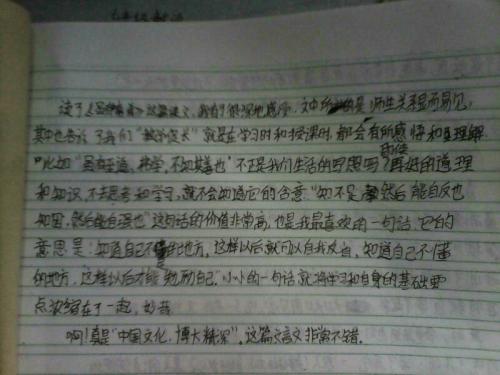 读了《虽有嘉肴》这篇短文，我有了很深地感受，文中所讲的是师生关系显而易见，
其中也告诉了我们"教学相长"就是在学习时和授课时，都会有所感悟和其理解
比如"虽有至道，弗学，不知其善也"不正是我们生活的写照吗？再好的道理
和知识，不去思考和学习，就不会知道它的含意"知不足，然后能自反也
知困，然后能自强也"这句话的价值非常高，也是我最喜欢的一句话，它的
意思是：知道自己不足的地方，这样以后就可以自我反省，知道自己不懂
的地方，这样以后才能勉励自己"小小的一句话就将学习和自身的基础要
点浓缩在了一起，妙哉
啊！真是"中国文化，博大精深"，这篇文言文非常不错.